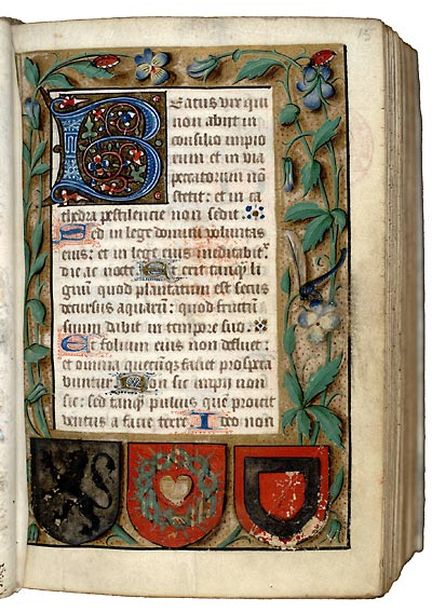 15
Beatus vir qui
non abijt in
consilio impio
rum et in via
peccatorum nō
stetit: et in ca
thedra pestilencie non sedit
Sed in lege domini voluntas
eius: et in lege eius meditabit᷑
die ac nocte Et erit tanqȝ li
gnum quod plantatum est secus
decursus aquarū: quod fructū
suum dabit in tempore suo.
Et folium eius non defluet:
et omnia quecūqȝ faciet prospera
buntur Non sic impij non
sic: sed tanqȝ puluis quē proicit
ventus a facie terre Ideo non